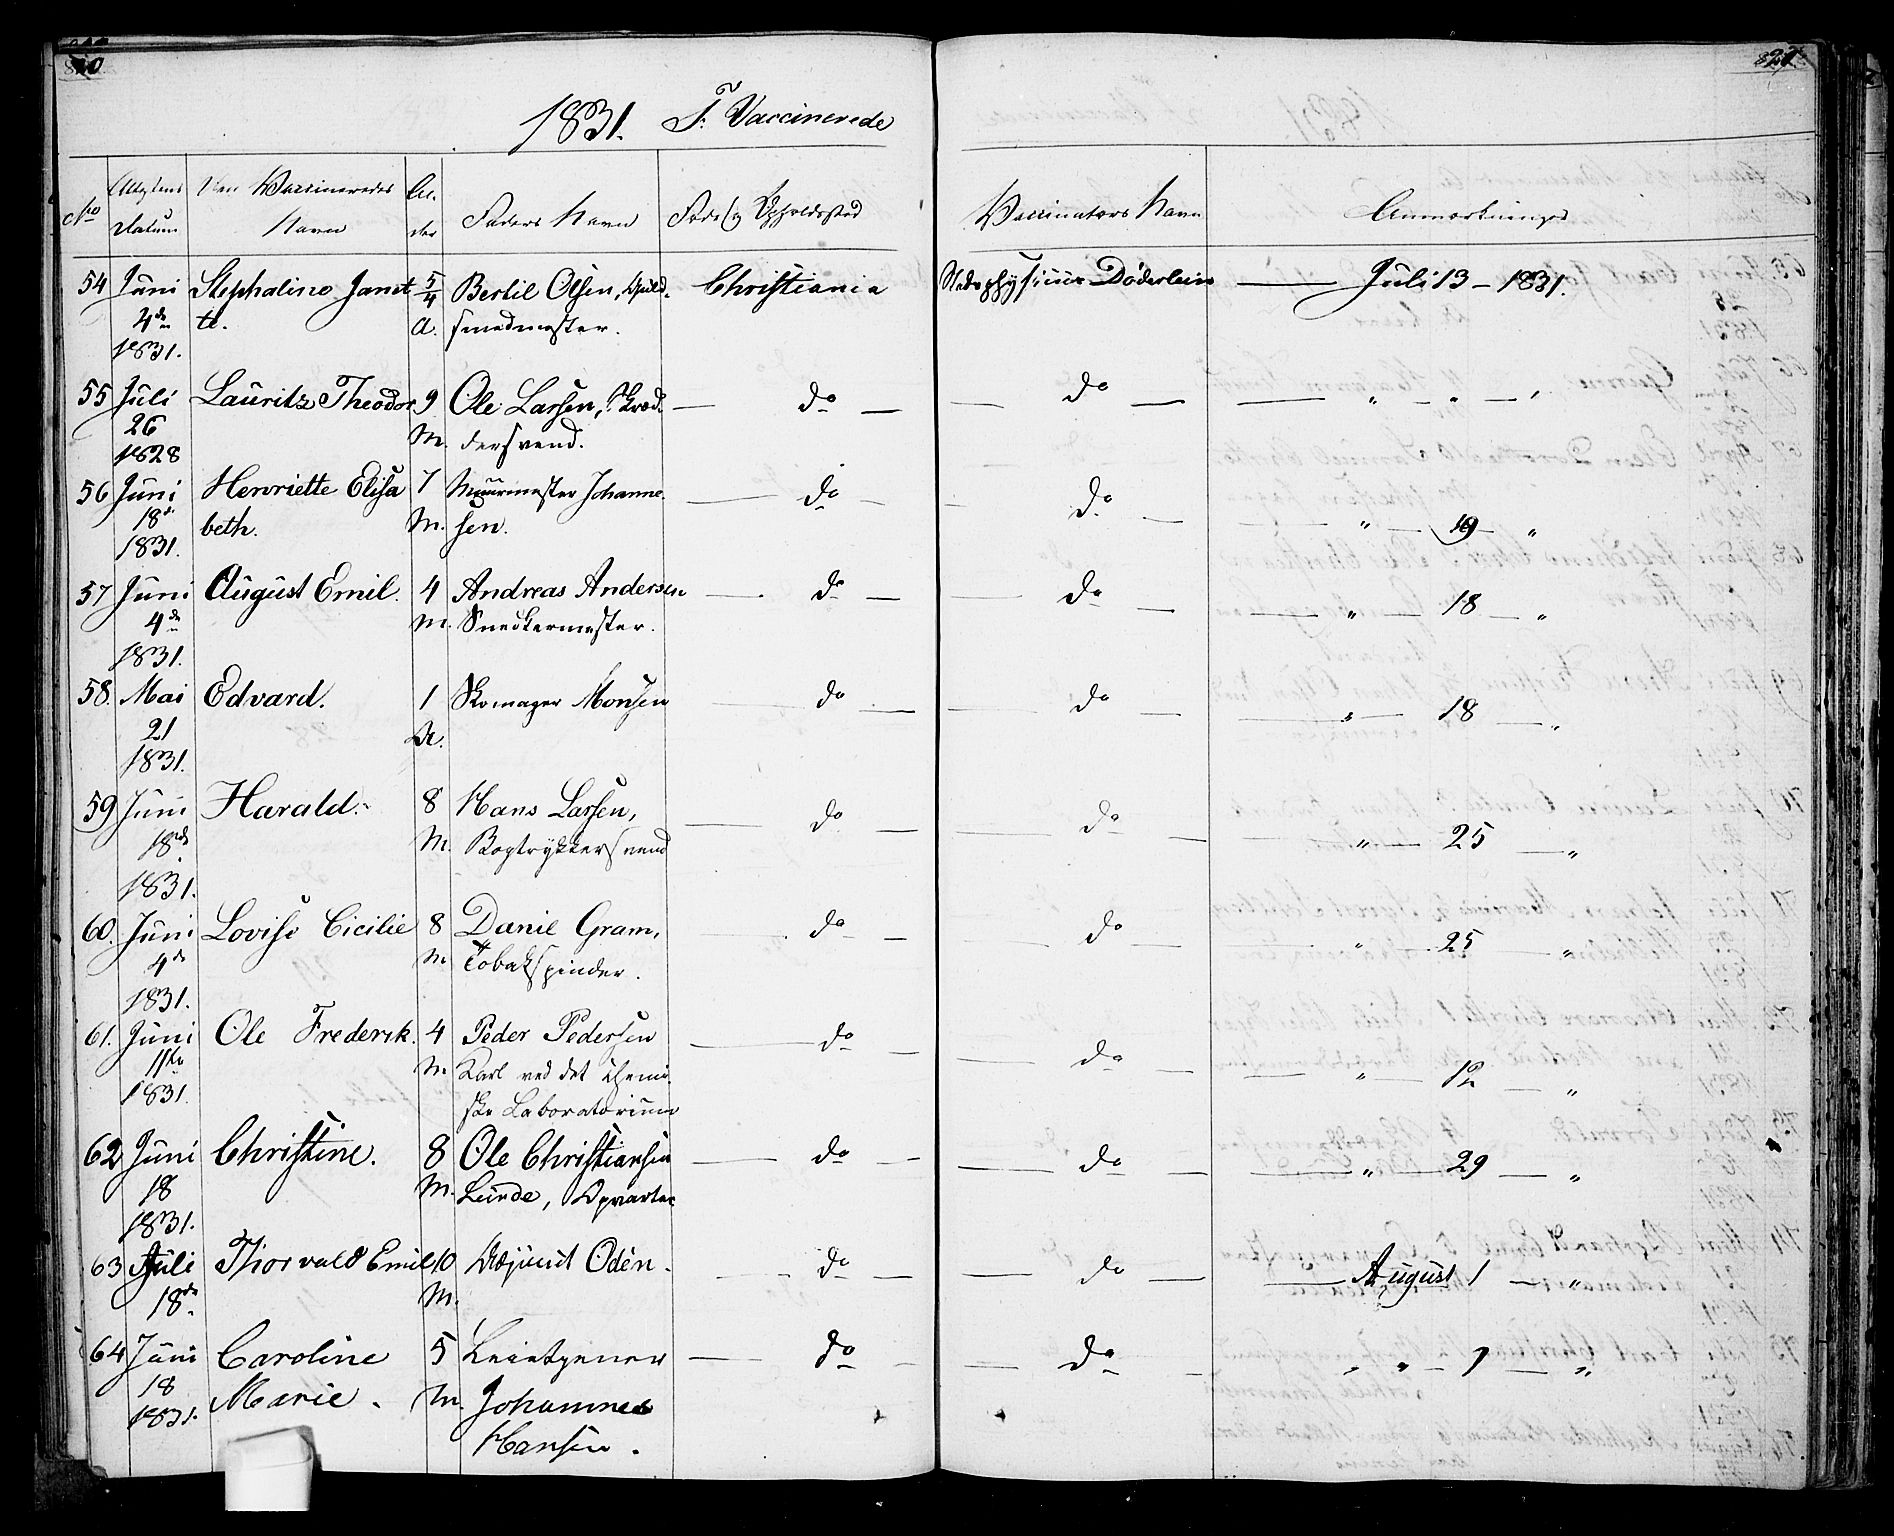 1831. F: Vaccinerede
No
Attestens Datum
Den Vaccineredes Navn
Al-der
Faders Navn
Føde og Opholdssted
Vaccinators Navn
Anmærkninger
54 Juni 4de 1831. Stephaline Janet-te. 5/4 A. Bertil Olsen, Guld-smedmester. Christiania Stadsphysicus Döderlein — Juli 13 — 1831.
55 Juli 26 1828 Lauritz Theodor 9 M. Ole Larsen, Skræd-dersvend. — do — — do — — " — " — "
56 Juni 18de 1831. Henriette Elisa beth. 7 M. Muurmester Johanne-sen. — do — — do — — " — 19 — "
57 Juni 4de 1831. August Emil. 4 M. Andreas Andersen Snedkermester. — do — — do — — " — 18 — "
58. Mai 21 1831. Edvard. 1 A. Skomager Monsen — do — — do — — " — 18 — "
59 Juni 18de 1831. Harald. 8 M. Hans Larsen, Bogtrykkersvend — do — — do — — " — 25 — "
60. Juni 4de 1831. Lovise Cicilie 8 M. Daniel Gram, Tobakspinder. — do — — do — — " — 25 — "
61. Juni 11te 1831. Ole Frederik. 4 M. Peder Pedersen Karl ved det chemi-ske Laboratorium — do — — do — — " — 12 — "
62 Juni 18 1831. Christine. 8 M. Ole Christiansen Lunde, Opvarter — do — — do — — " — 29 — "
63 Juli 18de Thorvald Emil 10 M. Adjunct Odén. — do — — do — — August 1 — "
64 Juni 18 1831. Caroline Marie. 5 M. Leietjener Johannes Hansen. — do — — do — " " — 1 — "